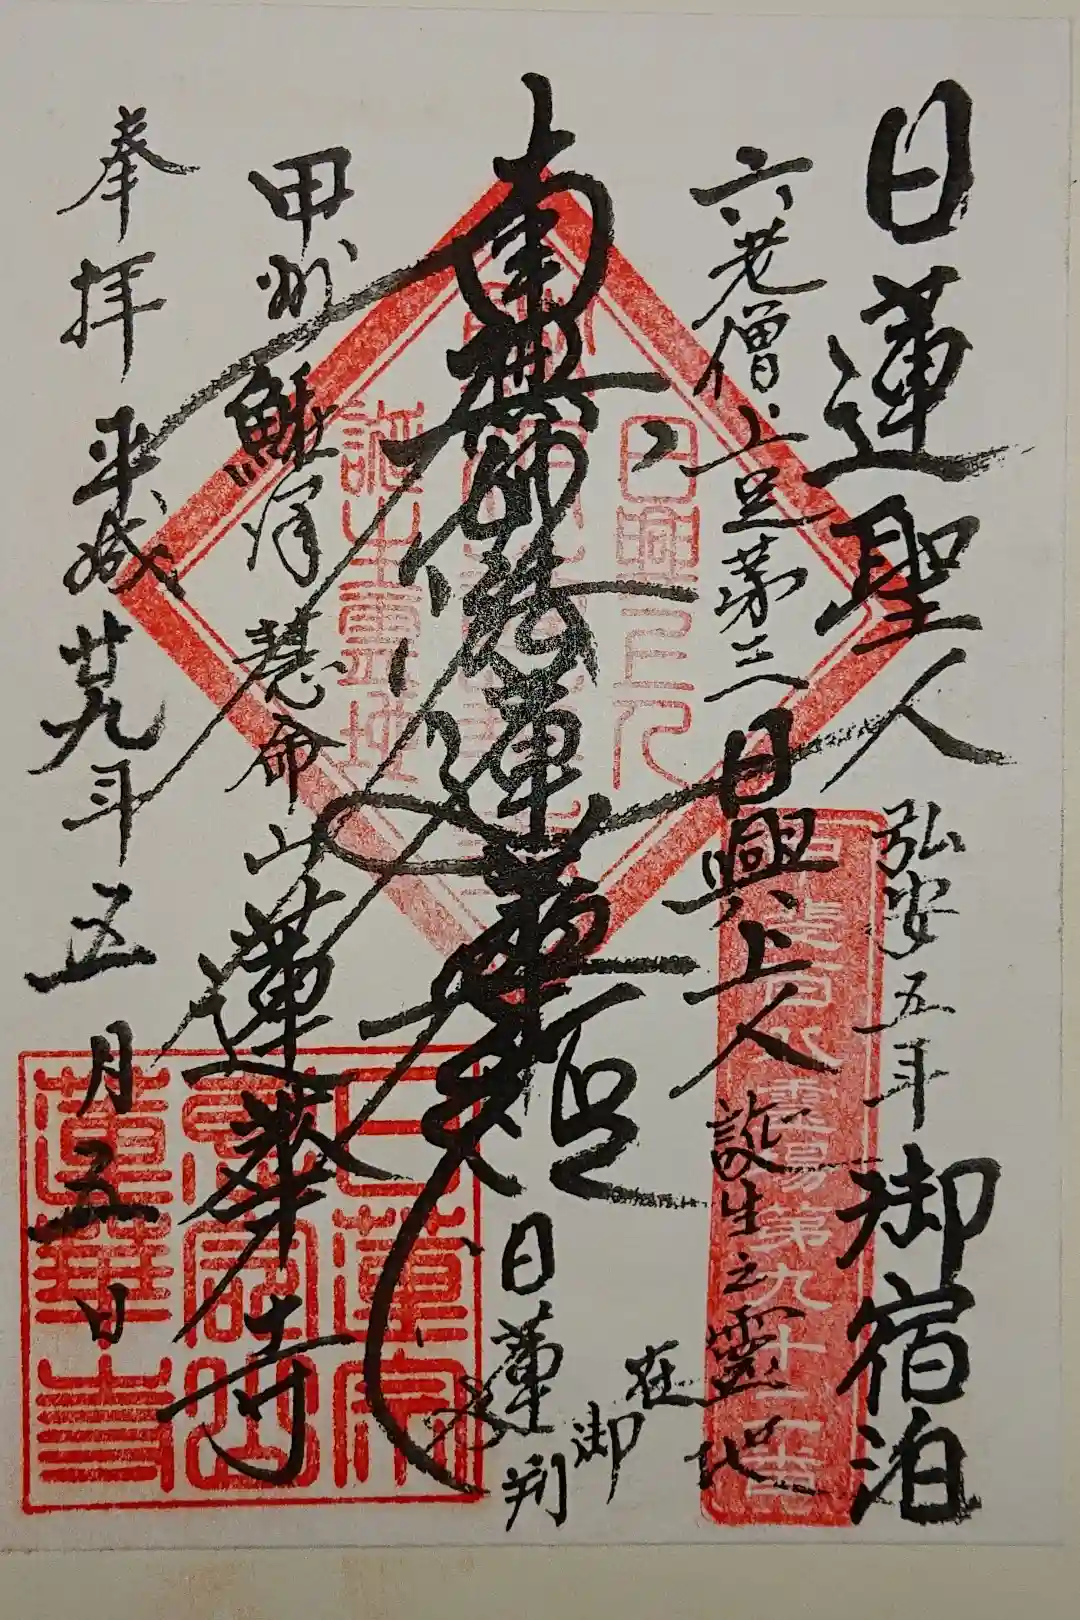 日蓮聖人 弘安五年 御宿泊
六老僧 上足第三 日興上人 誕生之霊地
南無妙法蓮華経 日蓮
在御判
甲州 鰍澤 慧命山 蓮華寺
奉拝 平成廿九年五月五日
日興上人
誕生霊地
甲斐百八霊場第九十二番
日蓮宗
慧命山
蓮華寺